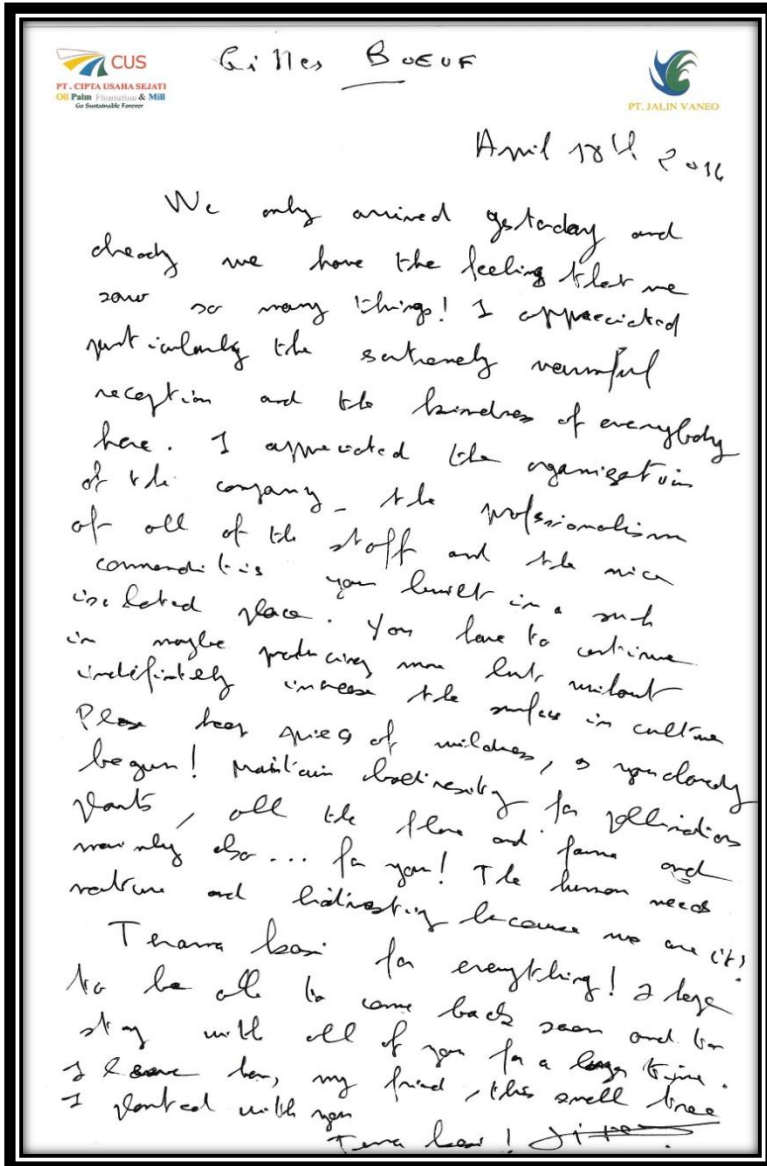 CUS
PT. CIPTA USAHA SEJATI
Oil Palm Plantation & Mill
Go Sustainable Forever
Gilles BOEUF
PT. JALIN VANEO
April 18th 2016
We only arrived yesterday and
already we have the feeling that we
saw so many things! I appreciated
particularly the extremely warmful
reception and the kindness of everybody
here. I appreciated the organization
of the company, the professionalism
of all of the staff and the nice
you built in a such
isolated place. You have to continue
in maybe producing more but without
indefinitely increase the surface in culture
Please keep of wildness, as you already
begun! Maintain biodiversity for pollinators
plants, all the flora and fauna and
mainly also... for you! The human needs
nature and biodiversity because we are it!
Terama kasi for everything! I hope
to be able to come back soon and to
stay with all of you for a longer time.
I leave here, my friend, this small tree
I planted with you
Tema kasi!